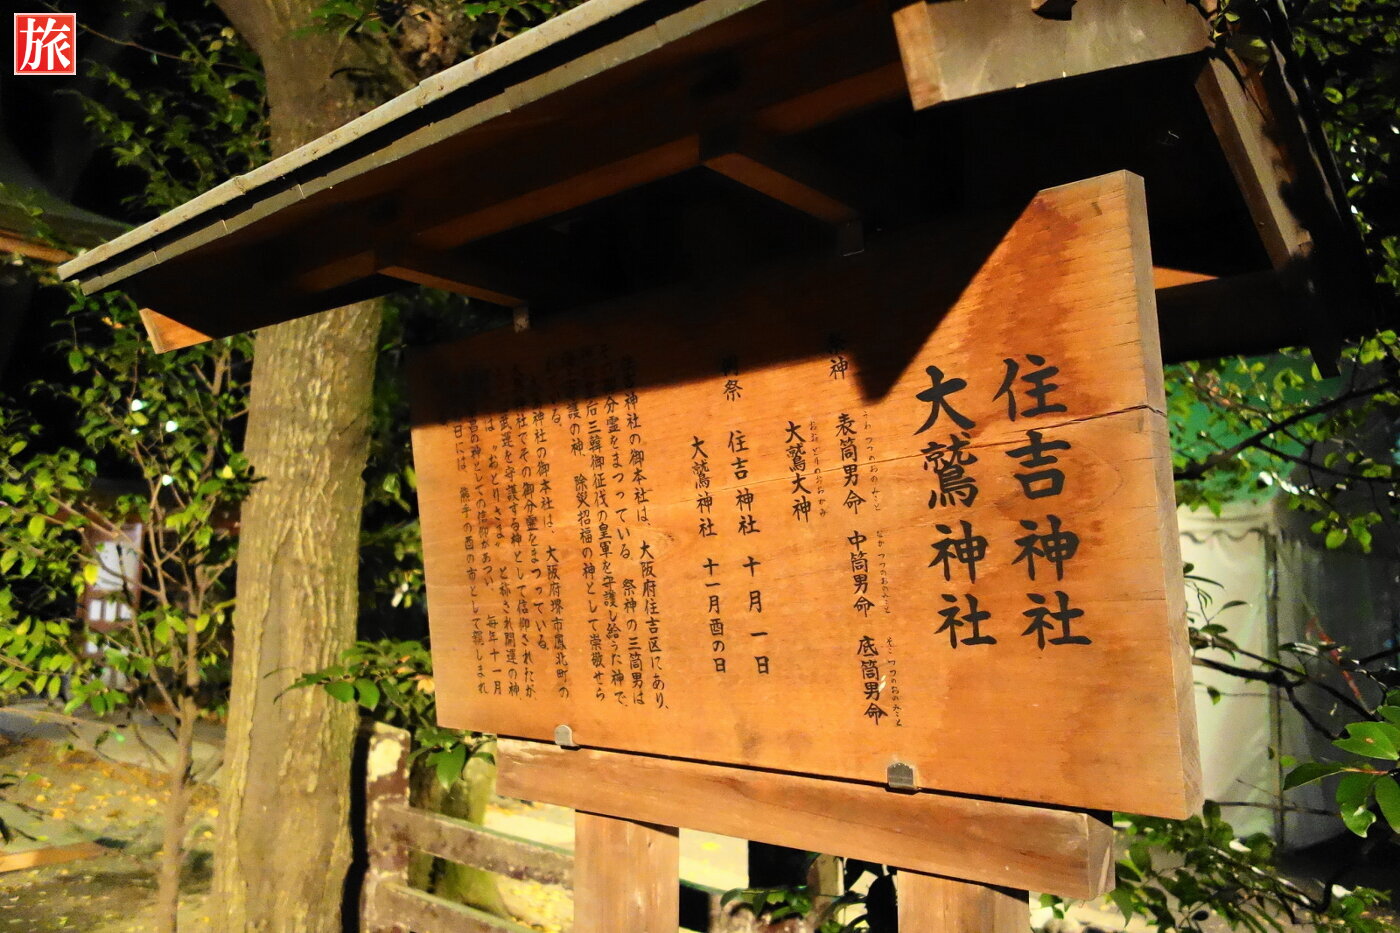 旅
住吉神社
大鷲神社
祭神 表筒男命 中筒男命 底筒男命
うわつつのおのみこと なかつつのおのみこと そこつつのおのみこと
大鷲大神
おおとりのおおかみ
例祭 住吉神社 十月一日
大鷲神社 十一月酉の日
住吉神社の御本社は、大阪府住吉区にあり、
その御分霊をまつっている。祭神の三筒男は
后三韓御征伐の皇軍を守護し給うた神で、
護の神 除災招福の神として崇敬せら
れている。
大鷲神社の御本社は、大阪府堺市鳳北町の
社でその御分霊をまつっている。
武運を守護する神として信仰されたが、
は〝おとりさま〟と称され開運の神
昌の神としての信仰があつい。毎年十一月
日には、熊手の酉の市として親しまれ